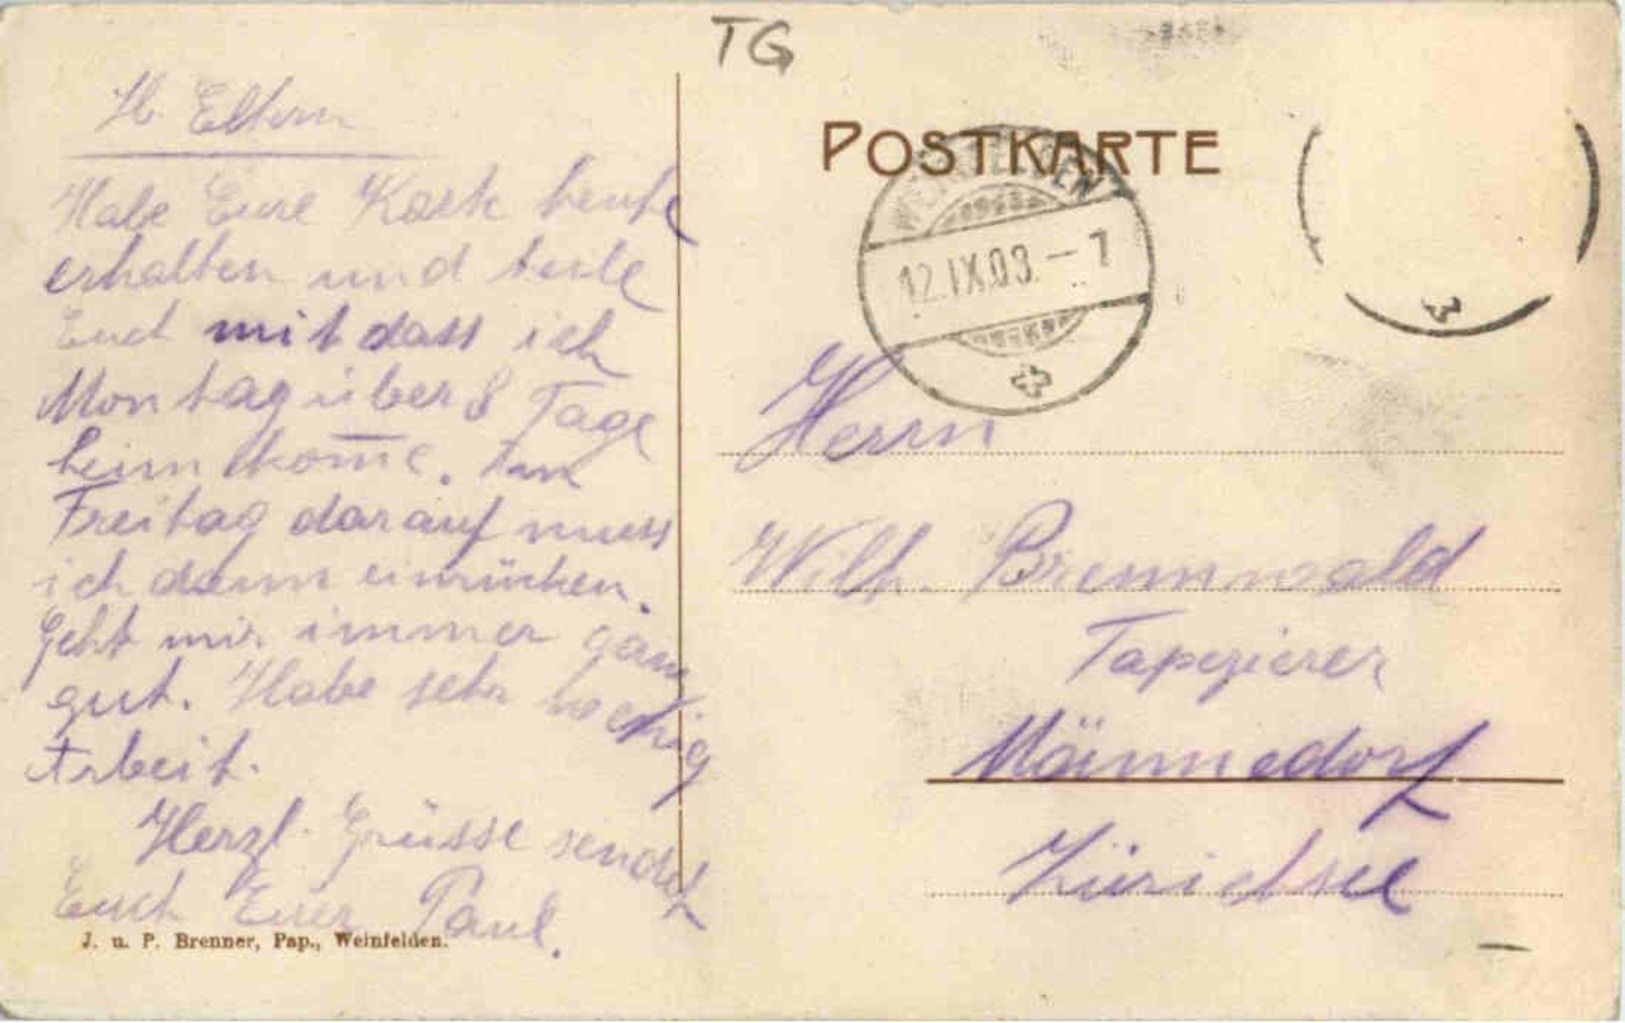 TG
POSTKARTE
WEINFELDEN
12.IX.09.-7
lb Eltern
Habe Eure Karte heute
erhalten und teile
Euch mit dass ich
Montag über 8 Tage
heim kom̅e. Am
Freitag darauf muss
ich dann einrücken.
Geht mir immer ganz
gut. Habe sehr wenig
Arbeit.
Herzl. Grüsse sendet
Euch Euer Paul.
J. u. P. Brenner, Pap., Weinfelden.
Herrn
Wilh. Brennwald
Tapezierer
Männedorf
Zürichsee